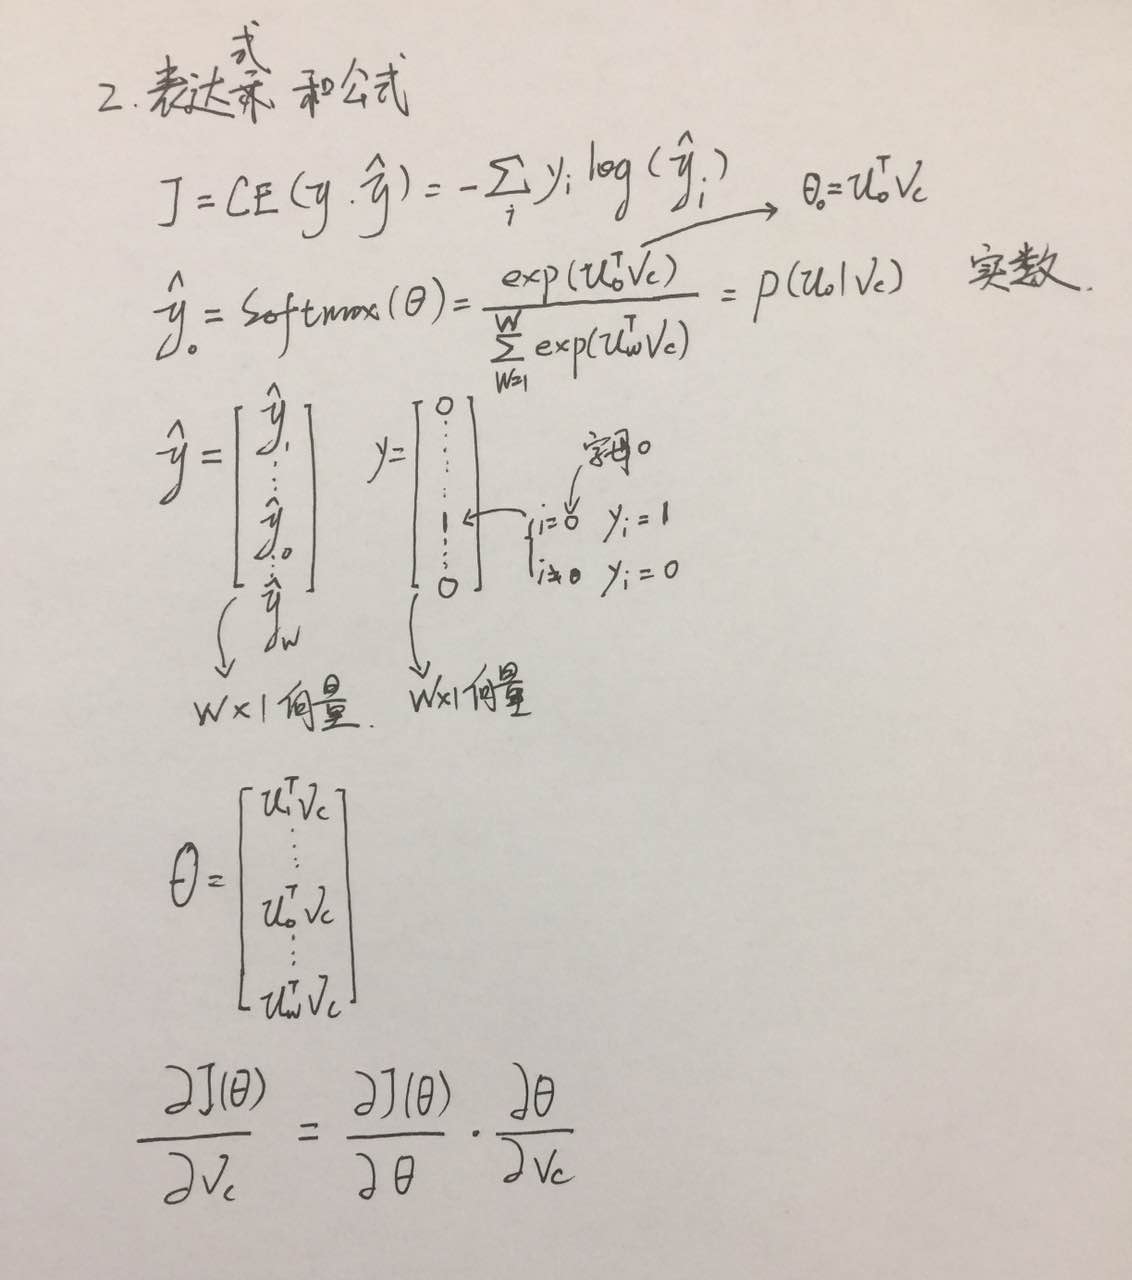 2. 表达式 和公式
J = CE(y . ŷ) = -∑ᵢ yᵢ log(ŷᵢ)
θₒ = uₒᵀVc
ŷₒ = Softmax(θ) = exp(uₒᵀVc) / ∑_{W=1}^{W} exp(u_wᵀVc) = p(uₒ|Vc) 实数.
ŷ = [ŷ₁ ⋮ ŷₒ ⋮ ŷ_W]
y = [0 ⋮ 1 ⋮ 0]
字母o
i=o yᵢ = 1
i≠o yᵢ = 0
W×1向量.
W×1向量
θ = [u₁ᵀVc ⋮ uₒᵀVc ⋮ u_wᵀVc]
∂J(θ)/∂Vc = ∂J(θ)/∂θ · ∂θ/∂Vc